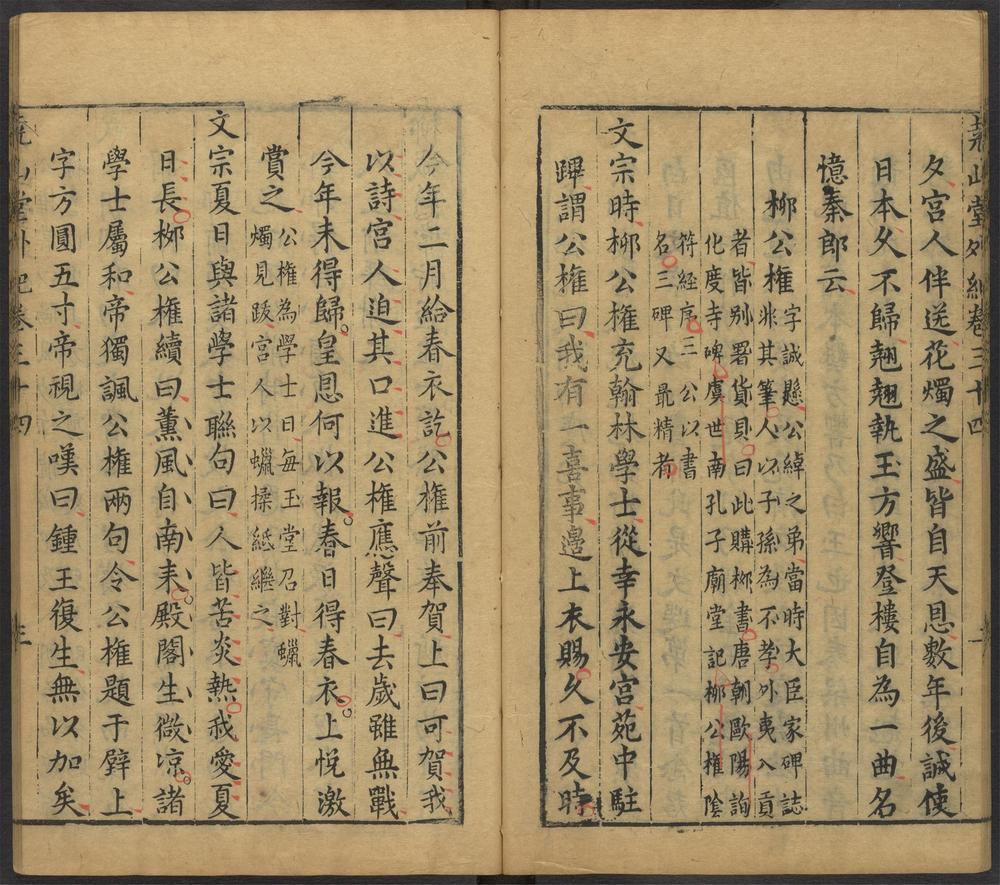 堯山堂外紀卷三十四
夕宮人伴送花燭之盛皆自天恩數年後誠使
日本久不歸翹翹執玉方響登樓自為一曲名
憶秦郎云
柳公權字誠懸公綽之弟當時大臣家碑誌
非其筆人以子孫為不孝外夷入貢
者皆别署貨貝曰此購柳書唐朝歐陽詢
化度寺碑虞世南孔子廟堂記柳公權陰
符經序三公以書
名三碑又最精者
文宗時柳公權充翰林學士從幸永安宮苑中駐
蹕謂公權曰我有一喜事邊上衣賜久不及時
今年二月給春衣訖公權前奉賀上曰可賀我
以詩宮人迫其口進公權應聲曰去歲雖無戰
今年未得歸皇恩何以報春日得春衣上悅激
賞之公權為學士日每玉堂召對蠟
燭見跋宮人以蠟揉紙繼之
文宗夏日與諸學士聯句曰人皆苦炎熱我愛夏
日長柳公權續曰薰風自南来殿閣生微凉諸
學士屬和帝獨諷公權兩句令公權題于壁上
字方圓五寸帝視之嘆曰鍾王復生無以加矣
堯山堂外紀卷三十四